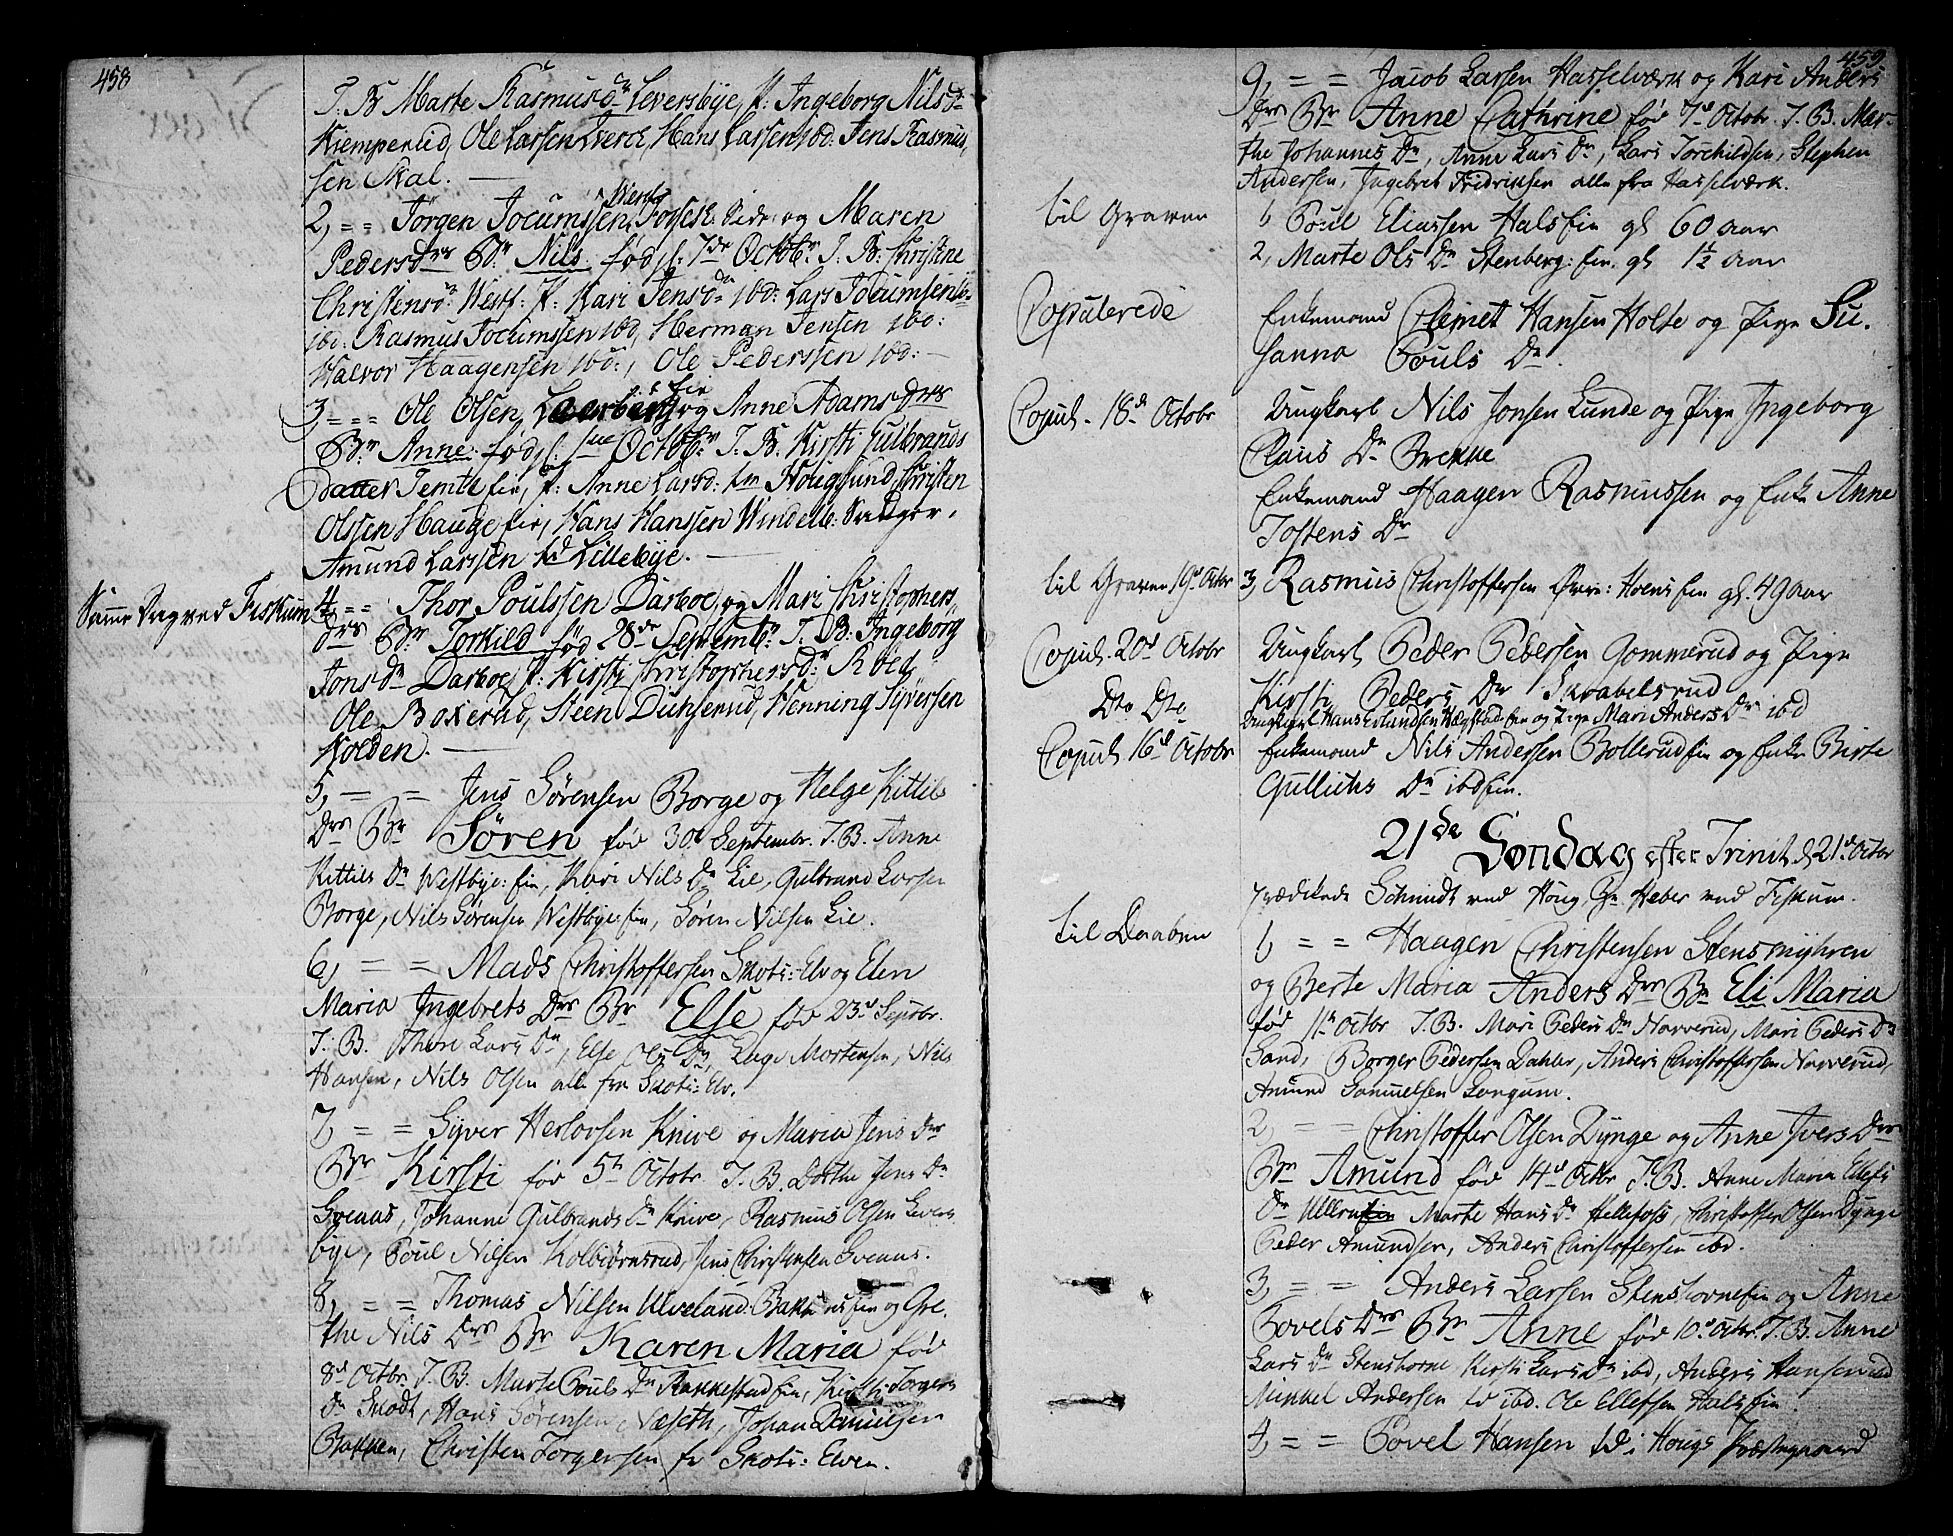 458
T. B. Marte Rasmusdr. Leversbye, P: Ingeborg Nilsd.
Kiemperud, Ole Larssen Hverch, Hans Larssen ibd: Jens Rasmus,
sen Skal.
Westf
2, = = Jörgen Jocumssen Fossesh: Eide: og Maren
Pedersdrs Bn Nils fød d: 7de Octobr. T. B. Christine
Christensdr. Westf: P: Kari Jensdr ibd: Lars Jocumsen
ibd: Rasmus Jocumssen ibd, Herman Jensen ibd:
Halvor Haagensen ibd:, Ole Pederssen ibd:
3, = = Ole Olsen og Anne Adamsdrs
Bn Anne fød d: 1ne Octobr. T. B. Kirsti Gulbrands
datter Temte fie, P: Anne Larsd: Hougsund, Christen
Olssen Hauge fie, Hans Hanssen Windelb: Sadger.
Amund Larssen Lillebye.
Samme Dag ved Fiskum
4, = = Thor Poulssen Darboe, og Mari Christophers
drs Bn Torkild fød 28de Septembr. T. B: Ingeborg
Jonsdr Darboe, P: Kirsti Christophersdr. Röed,
Ole Boxerud, Steen Dunserud, Henning Syverssen
Kolden.
5, = = Jens Sörensen Borge og Helge Kittils
Drs Bn Sören fød 30 Septembr. T. B. Anne
Kittils Dr Westbye: fie, Kari Nils Dr Lie, Gulbrand Larsen
Borge, Nils Sörensen Westbye fie, Sören Nilsen Lie.
6, = = Mads Christoffersen Skots: Elv og Elen
Maria Ingebrets Drs Bn Else fød 23d Septbr.
T. B. Thore Lars Dr, Else Ols Dr, Lage Mortensen, Nils
Hansen, Nils Olsen alle fra Skots: Elv.
7, = = Syver Herlovsen Knive og Maria Jens Drs
Bn Kirsti fød 5te Octobr T. B. Dorthe Jens Dr
Sveaas, Johanne Gulbrands Dr Knive, Rasmus Olsen Levers
bye, Poul Nilsen Kolbiörnsrud, Jens Christensen Sveaas.
8, = = Thomas Nilsen Ulveland: Bakke: fie og Gre,
the Nils Drs Bn Karen Maria fød
8d Octbr. T. B. Marte Pouls Dr Rakkestad fie, Kirsti Torgers
Dr Skodt, Hans Sörensen Næseth, Johan Danielsen
Bakken, Christen Torgersen fr Skots: Elven.
459
9, = = Jacob Larsen Hasselværk og Kari Anders
Drs Bn Anne Cathrine fød 7d Octobr. T. B. Mar-
the Johannes Dr, Anne Lars Dr, Lars Torchildsen, Stephen
Andersen, Ingebret Fridriksen alle fra Hasselværk.
til Graven
1 Poul Eliassen Hals fie gl 60 aar
2, Marte Ols Dr Stenberg: fie. gl 1½ aar
Copulerede
Enkemand Clemet Hansen Holte og Pige Su.
sanna Pouls Dr.
Copul. 18d Octobr
Ungkarl Nils Jonsen Lunde og Pige Ingeborg
Claus Dr Brekke
Enkemand Haagen Rasmussen og Enke Anne
Tostens Dr
til Graven 19d Octbr
3, Rasmus Christoffersen Øvre: Hoens fie gl. 49 aar
Copul. 20d Octobr
Ungkarl Peder Pedersen Gommerud og Pige
Kirsti Peders Dr Skrabelsrud
Dto Dto
Ungkarl Hans Erlandsen Hægstad fie og Pige Mari Anders Dr ibd
Copul. 16d Octobr
Enkemand Nils Andersen Bollerud fie og Enke Birte
Gullichs Dr ibd fie.
21de Søndag efter Trinit. d 21d Octbr
Prædikede Schmidt ved Houg, Hr. Heber ved Fiskum.
til Daaben
1, = = Haagen Christensen Stensmyhren
og Berte Maria Anders Drs Bn Eli Maria
fød 11te Octbr T. B. Mari Peders Dr Narverud, Mari Peders Dr
Sand, Borger Pedersen Dahler, Anders Christoffersen Narverud,
Amund Samuelsen Longum.
2, = = Christoffer Olsen Dynge og Anne Ivers Drs
Bn Amund fød 14d Octbr T. B. Anne Maria Ellefs
Dr Ullern Marte Hans Dr Hellefoss, Christoffer Olsen Dynge
Peder Amundsen, Anders Christoffersen ibd.
3, = = Anders Larsen Stenshorne fie og Anne
Povels Drs Bn Anne fød 10d Octbr. T. B. Anne
Lars Dr Stenshorne Kirsti Lars Dr ibd, Anders Hansen ibd
Mikkel Andersen ibd. Ole Ellefsen Hals fie.
4, = = Povel Hansen i Hougs Præstegaard